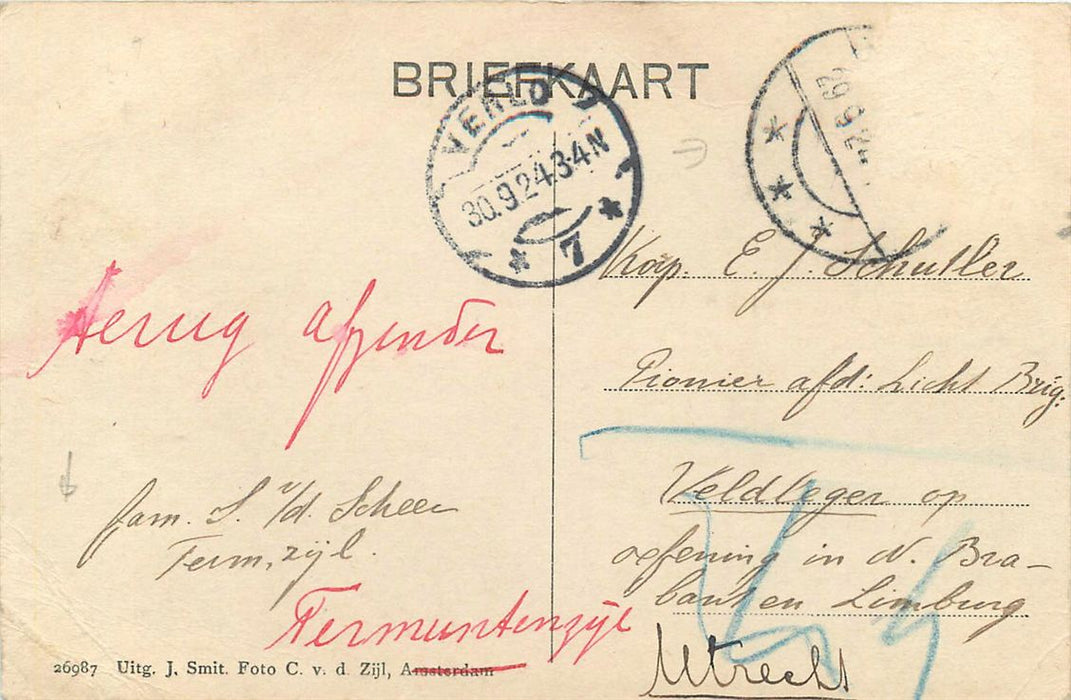 BRIEFKAART
VENLO
30.9.24.3-4N
7
Korp. E. J. Schutler
Pionier afd: Licht Brig:
Veldleger op
oefening in N. Bra-
bant en Limburg
Utrecht
Terug afzender
fam. S. v/d. Scheer
Term,zijl.
Termuntenzijl
26987 Uitg. J. Smit. Foto C. v. d. Zijl, Amsterdam